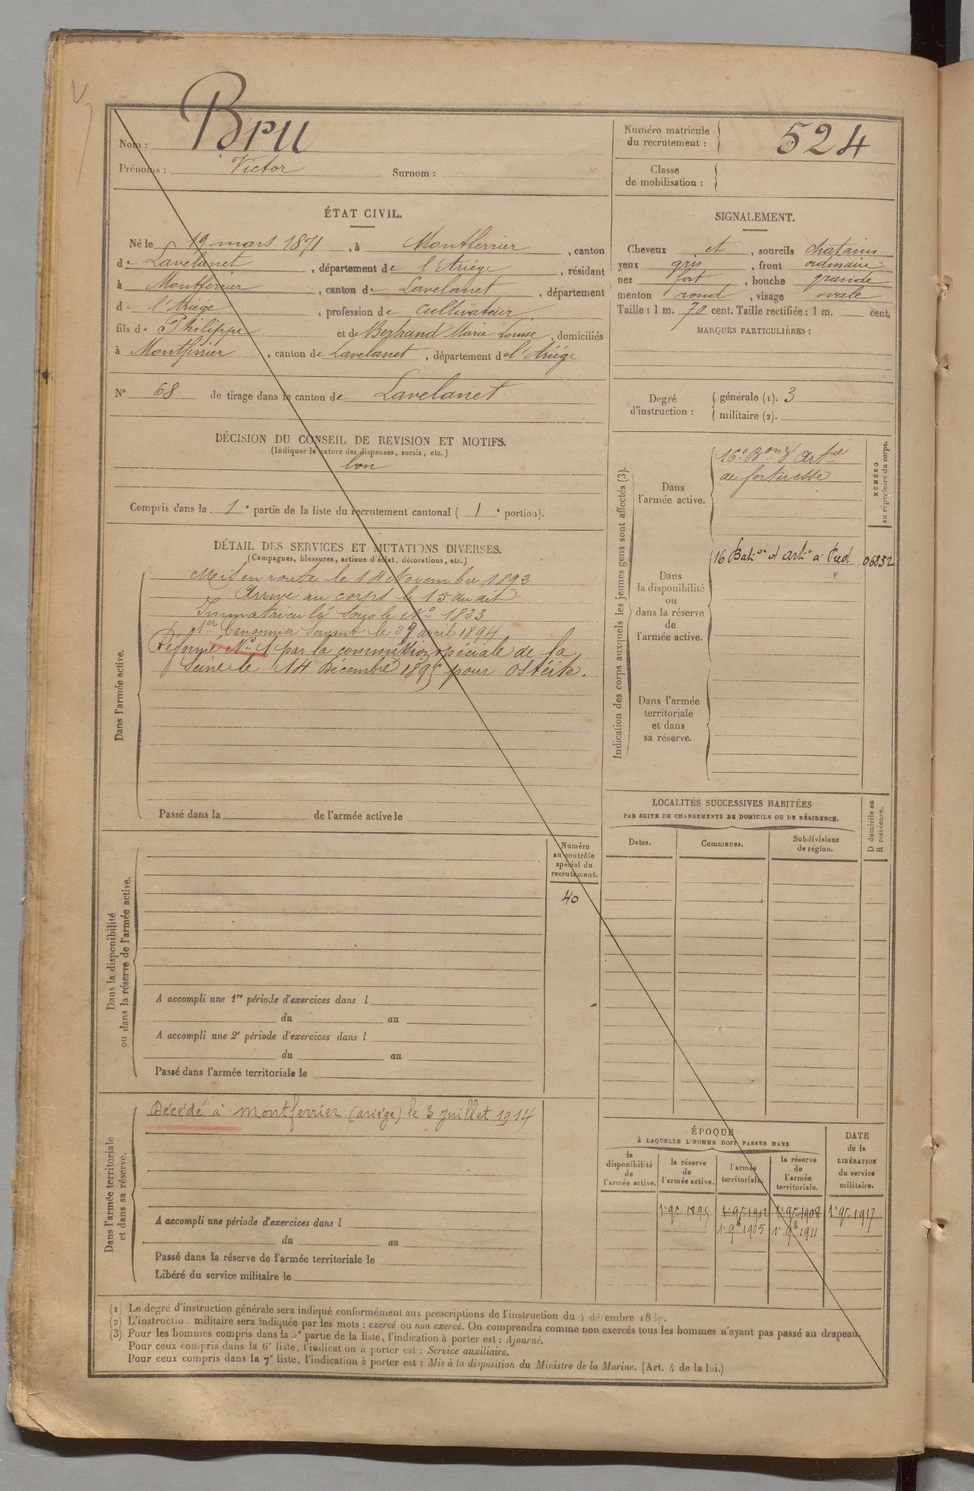 Nom : Bru
Prénoms : Victor Surnom :
Numéro matricule du recrutement : 524
Classe de mobilisation :
ÉTAT CIVIL.
Né le 19 mars 1871, à Montferrier, canton
de Lavelanet, département de l'Ariège, résidant
à Montferrier, canton de Lavelanet, département
d l'Ariège, profession de cultivateur
fils de Philippe et de Bertrand Marie Louise, domiciliés
à Montferrier, canton de Lavelanet, département de l'Ariége
N° 68 de tirage dans le canton de Lavelanet
SIGNALEMENT.
Cheveux et, sourcils chatains
yeux gris, front ordinaire
nez fort, bouche grande
menton rond, visage ovale
Taille : 1 m. 70 cent. Taille rectifiée : 1 m. cent.
MARQUES PARTICULIÈRES :
Degré d'instruction : générale (1). 3
militaire (2).
DÉCISION DU CONSEIL DE REVISION ET MOTIFS.
(Indiquer la nature des dispenses, sursis, etc.)
bon
Compris dans la 1e partie de la liste du recrutement cantonal ( 1e portion).
DÉTAIL DES SERVICES ET MUTATIONS DIVERSES.
(Campagnes, blessures, actions d'éclat, décorations, etc.)
Dans l'armée active.
Mis en route le 14 Novembre 1893
Arrivé au corps le 15 du dit
Immatriculé sous le N° 1833
1er Canonnier servant le 27 avril 1894
Réformé N° 1 par la commission spéciale de la
Seine le 14 Décembre 1895 pour Ostéite.
Passé dans la de l'armée active le
Indication des corps auxquels les jeunes gens sont affectés (3).
NUMÉRO au répertoire du corps.
Dans l'armée active.
16e Bon d'Artie
de forteresse
Dans la disponibilité ou dans la réserve de l'armée active.
16 Baton d'artie à Pied 06852
Dans l'armée territoriale et dans sa réserve.
LOCALITÉS SUCCESSIVES HABITÉES
PAR SUITE DE CHANGEMENTS DE DOMICILE OU DE RÉSIDENCE.
Dates. Communes. Subdivisions de région. D domicile ou R résidence.
Dans la disponibilité ou dans la réserve de l'armée active.
Numéro au contrôle spécial du recrutement.
40
A accompli une 1re période d'exercices dans l
du au
A accompli une 2e période d'exercices dans l
du au
Passé dans l'armée territoriale le
Dans l'armée territoriale et dans sa réserve.
Décédé à Montferrier (ariège) le 3 Juillet 1914
A accompli une période d'exercices dans l
du au
Passé dans la réserve de l'armée territoriale le
Libéré du service militaire le
ÉPOQUE
À LAQUELLE L'HOMME DOIT PASSER DANS
la disponibilité de l'armée active. la réserve de l'armée active. l'armée territoriale. la réserve de l'armée territoriale. DATE de la LIBÉRATION du service militaire.
1er 9e 1895 1er 9e 1902 1er 9e 1908 1er 9e 1917
1er 9b 1905 1er 9b 1911
(1) Le degré d'instruction générale sera indiqué conformément aux prescriptions de l'instruction du 4 décembre
(2) L'instruction militaire sera indiquée par les mots : exercé ou non exercé. On comprendra comme non exercés tous les hommes n'ayant pas passé au drapeau.
(3) Pour les hommes compris dans la partie de la liste, l'indication à porter est : Ajourné.
Pour ceux compris dans la 6e liste, l'indication à porter est : Service auxiliaire.
Pour ceux compris dans la 7e liste, l'indication à porter est : Mis à la disposition du Ministre de la Marine. (Art. 4 de la loi.)